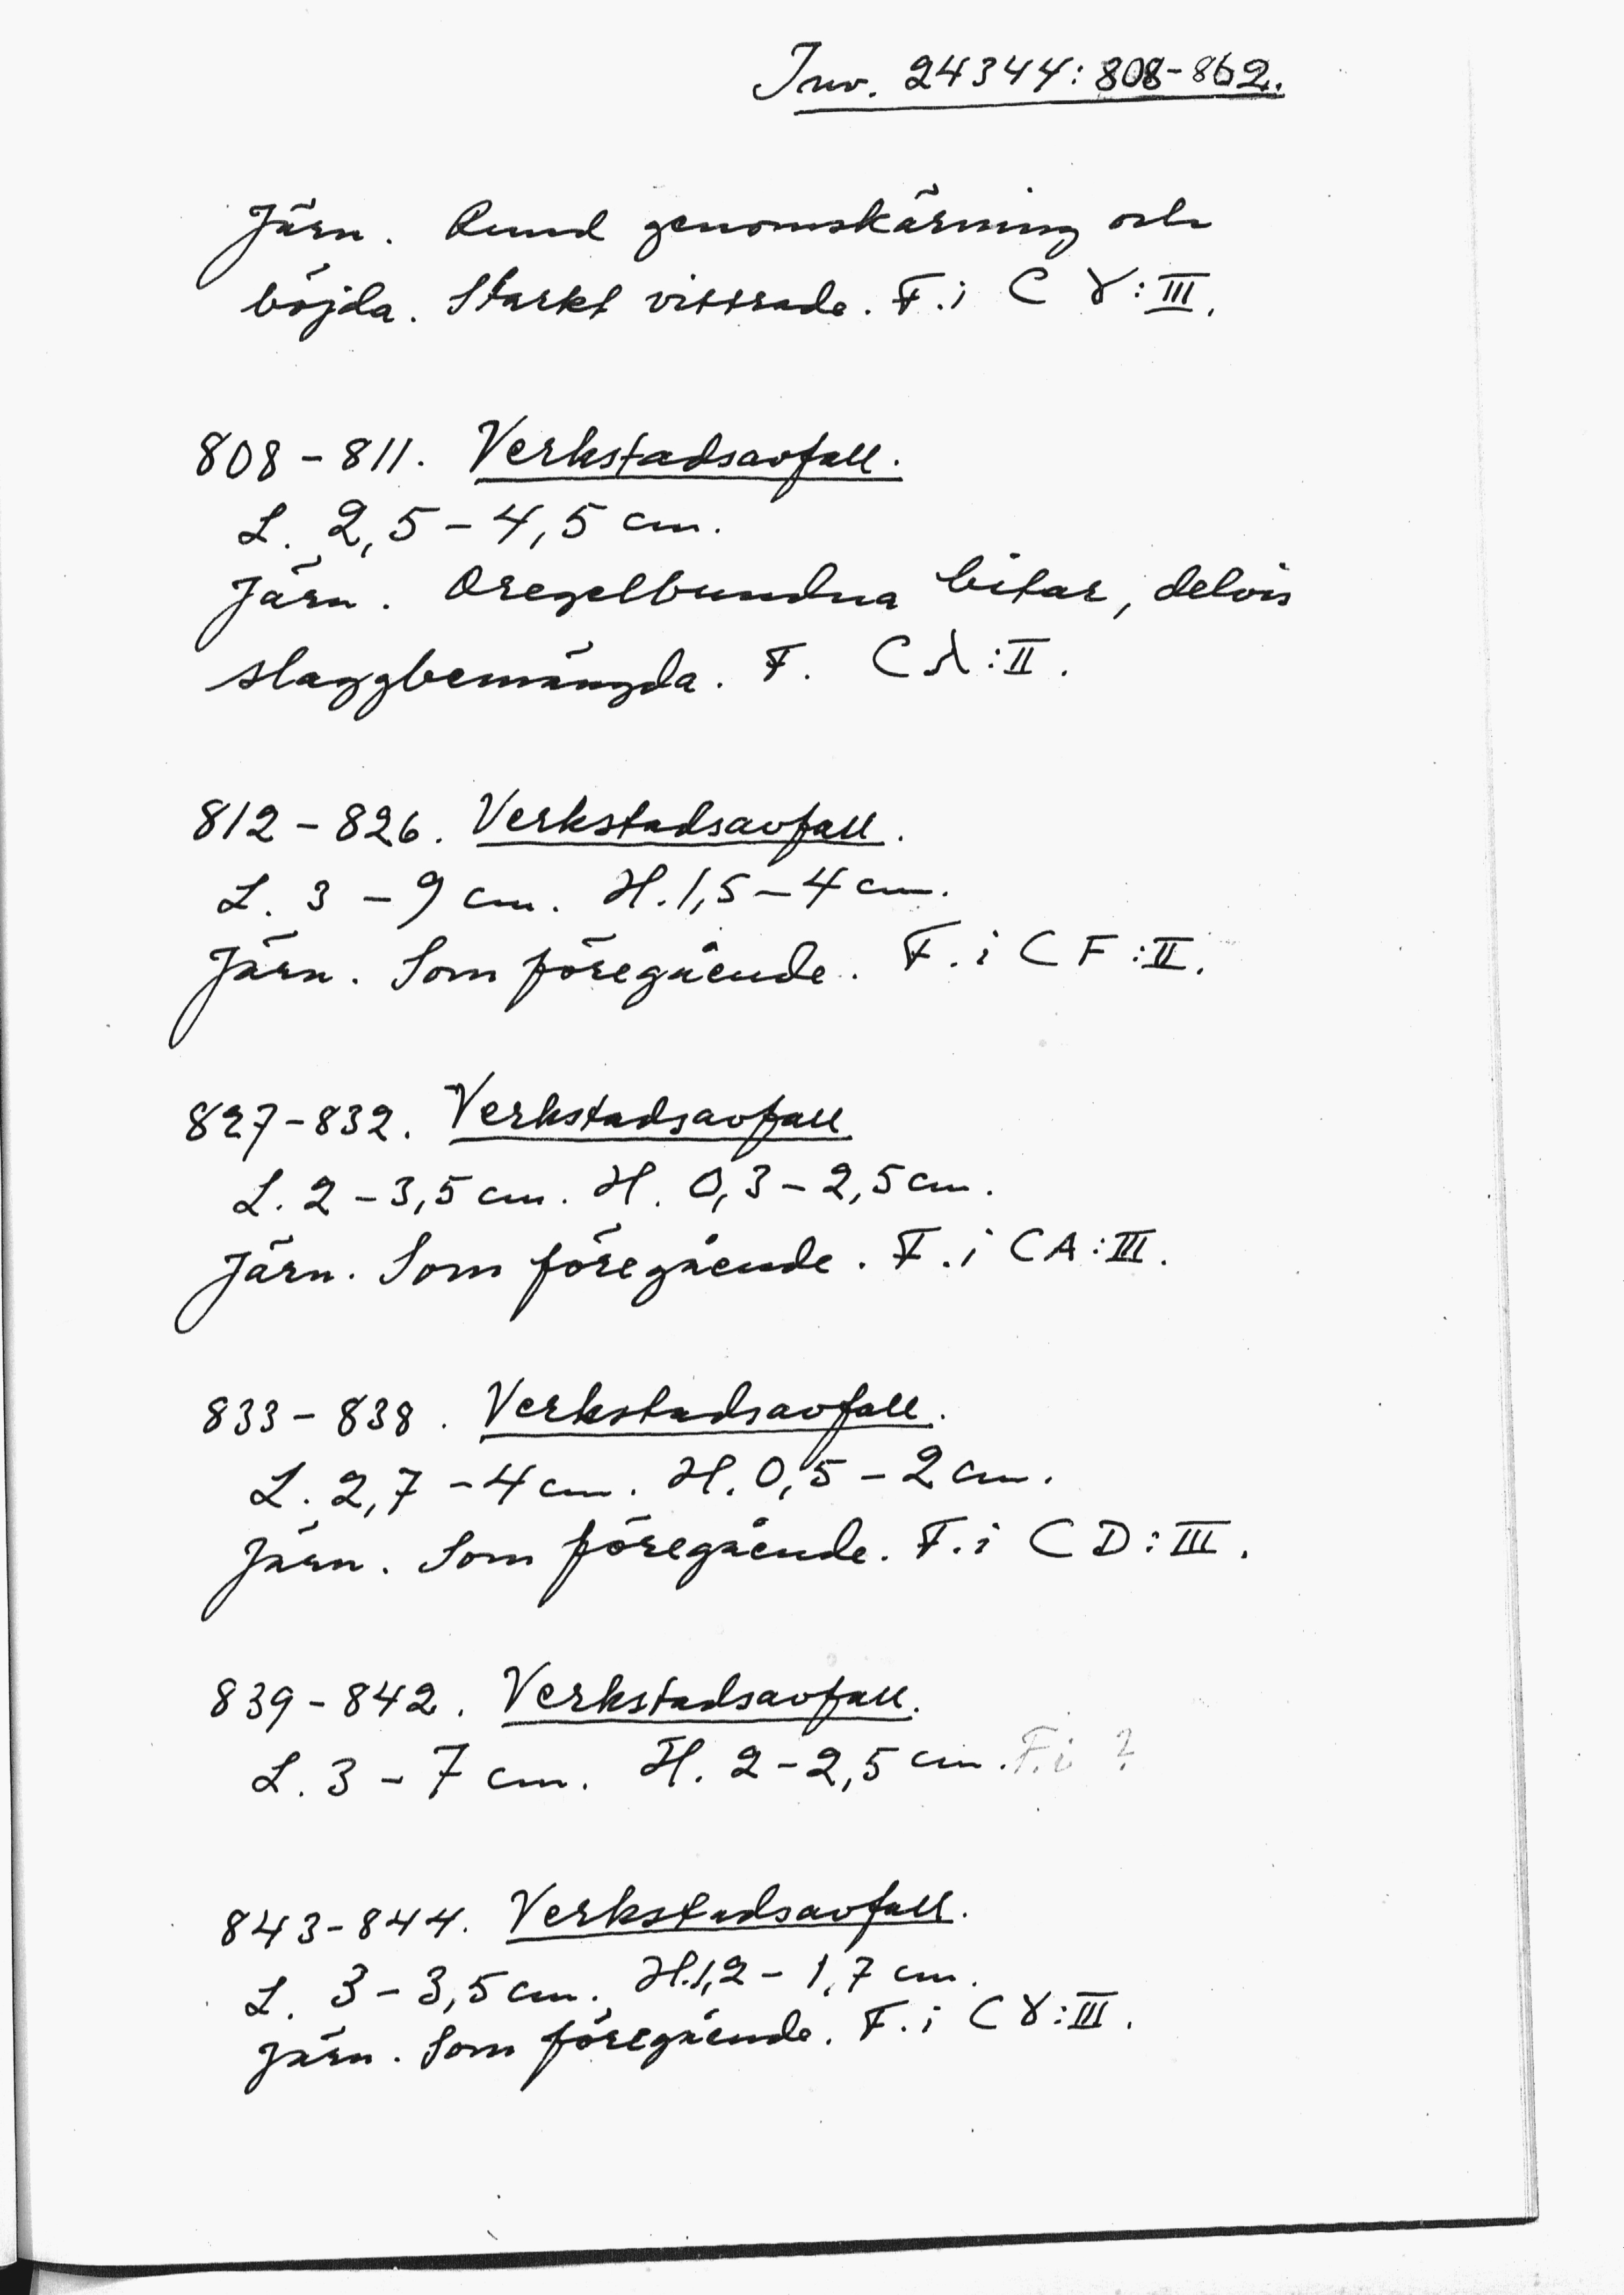 Inv. 24344: 808-862.
Järn. Rund genomskärning och
böjda. Starkt vittrade. F. i C Ɣ: III.
808-811. Verkstadsavfall.
L. 2,5-4,5 cm.
Järn. Oregelbundna bitar, delvis
slaggbemängda. F. C A: II.
812-826. Verkstadsavfall.
L. 3 - 9 cm. H. 1,5-4 cm.
Järn. Som föregående. F. i C F: II.
827-832. Verkstadsavfall
L. 2-3,5 cm. H. 0,3-2,5 cm.
Järn. Som föregående. F. i C A: III.
833-838. Verkstadsavfall.
L. 2,7 - 4 cm. H. 0,5-2 cm.
Järn. Som föregående. F. i C D: III.
839-842. Verkstadsavfall.
L. 3 - 7 cm. H. 2-2,5 cm. F. i ?
843-844. Verkstadsavfall.
L. 3-3,5 cm. H. 1,2 - 1,7 cm.
Järn. Som föregående. F. i C Ɣ: III.